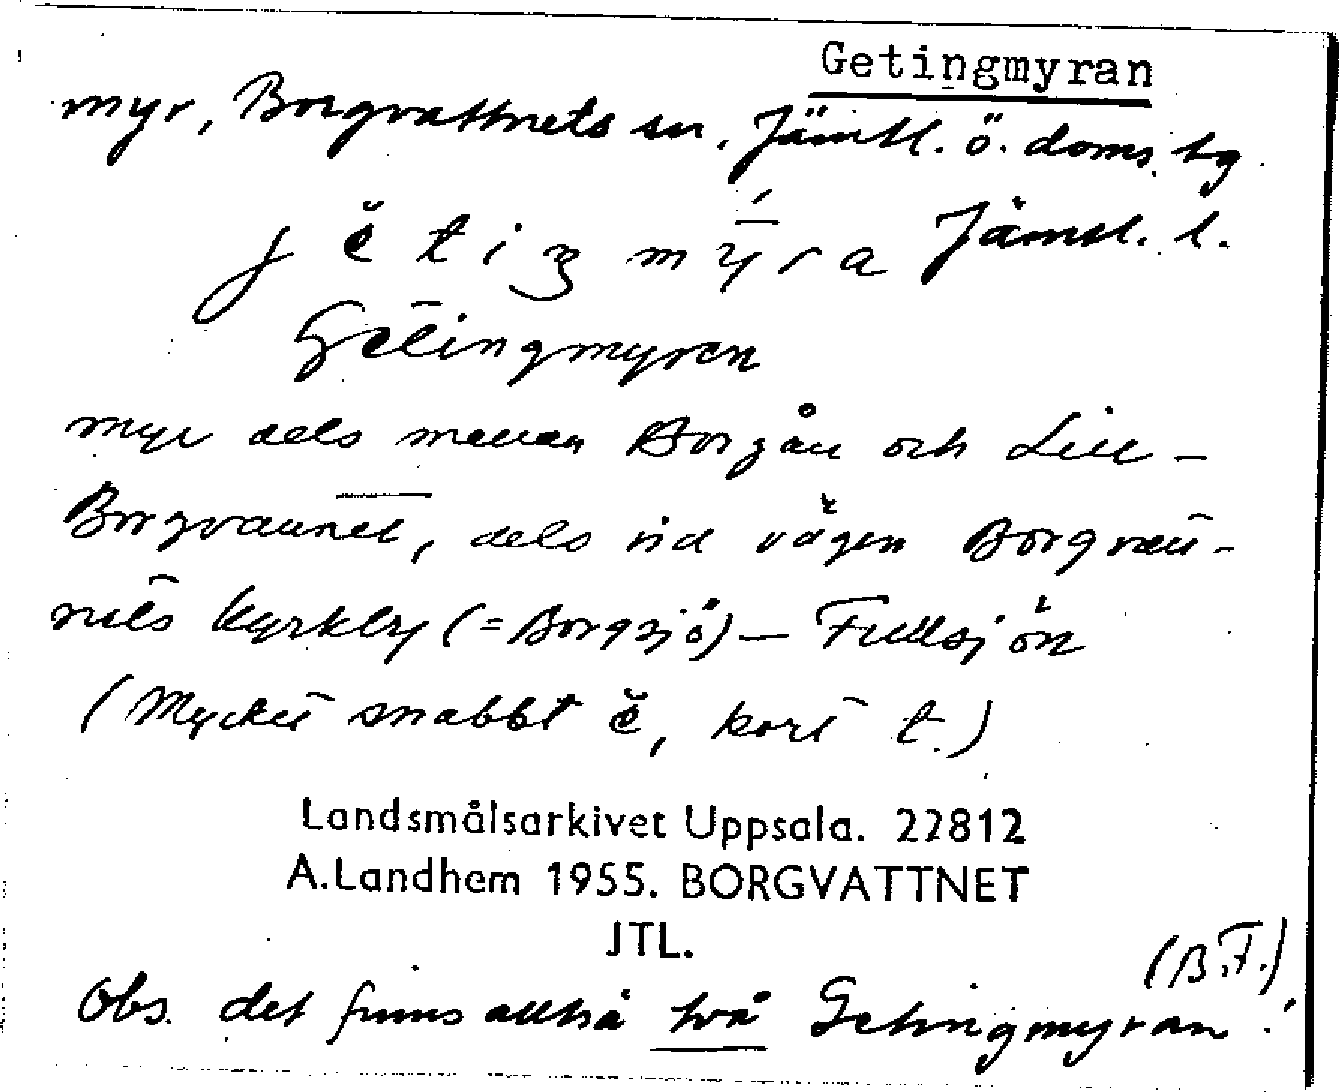 Getingmyran
myr, Borgvattnets sn, Jämtl. ö. doms. tg
Jämtl. l.
Getingmyren
myr dels mellan Borgån och Lill-
Borgvattnet, dels vid vägen Borgvatt-
nets kyrkby (=Borgsjö) – Fullsjön
(Mycket snabbt ĕ, kort t.)
Landsmålsarkivet Uppsala. 22812
A.Landhem 1955. BORGVATTNET
JTL.
(B.F.)
Obs. det finns alltså två Getingmyran!